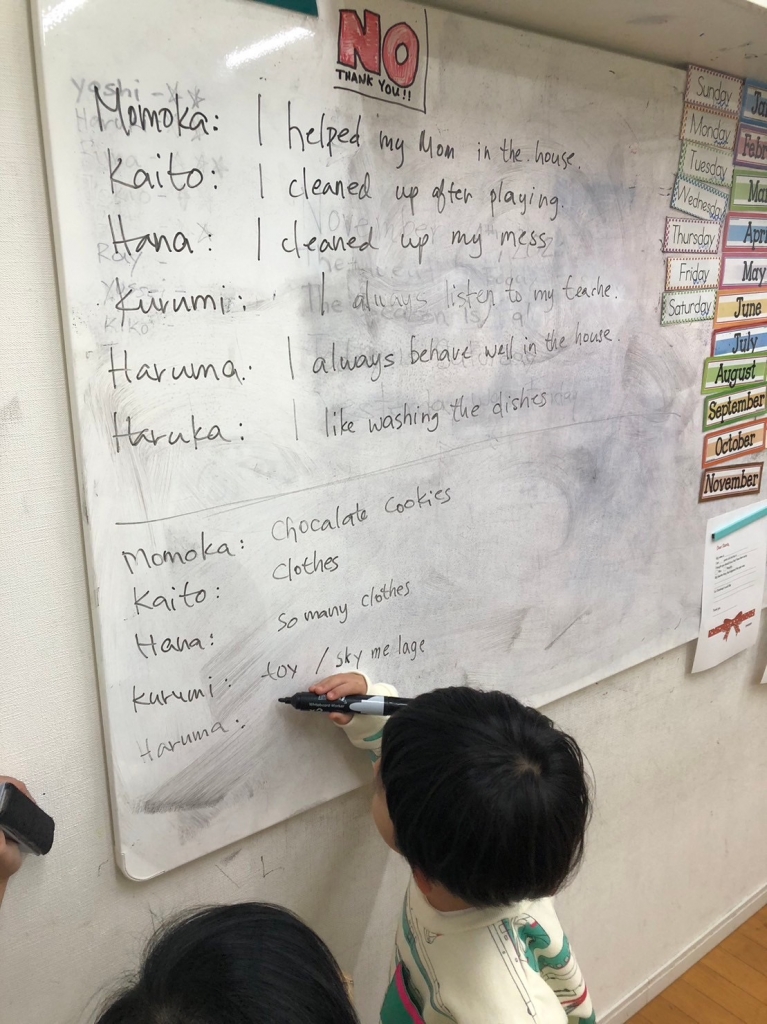 NO
THANK YOU!!
Momoka: I helped my Mom in the house.
Kaito: I cleaned up after playing.
Hana: I cleaned up my mess
Kurumi: I always listen to my teache.
Haruma: I always behave well in the house.
Haruka: I like washing the dishes
Momoka: Chocalate Cookies
Kaito: Clothes
Hana: So many clothes
Kurumi: toy / sky me lage
Haruma:
Sunday
Monday
Tuesday
Wednesday
Thursday
Friday
Saturday
May
June
July
August
September
October
November